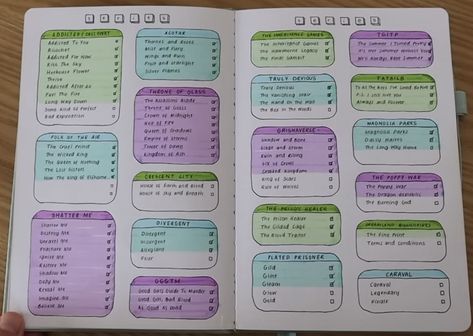 SERIES
ADDICTED / CALLOWAY
Addicted To You
Ricochet
Addicted For Now
Kiss The Sky
Hothouse Flower
Thrive
Addicted After All
Fuel The Fire
Long Way Down
Some Kind of Perfect
FOLK OF THE AIR
The Cruel Prince
The Wicked King
The Queen of Nothing
The Lost Sisters
How The King of Elfhame
SHATTER ME
Shatter Me
Destroy Me
Unravel Me
Fracture Me
Ignite Me
Restore Me
Shadow Me
Defy Me
Reveal Me
Imagine Me
Believe Me
Thorns and Roses
Mist and Fury
Wings and Ruin
Frost and Starlight
Silver Flames
THRONE OF GLASS
The Assassins Blade
Throne of Glass
Crown of Midnight
Heir of Fire
Queen of Shadows
Empire of Storms
Tower of Dawn
Kingdom of Ash
CRESCENT CITY
House of Earth and Blood
House of Sky and Breath
DIVERGENT
Divergent
Insurgent
Allegiant
Four
GGGTM
Good Girls Guide To Murder
Good Girl, Bad Blood
As Good As Dead
SERIES
THE INHERITANCE GAMES
The Inheritance Games
The Hawthorne Legacy
The Final Gambit
TRULY DEVIOUS
Truly Devious
The Vanishing Stair
The Hand in the Wall
The Box in the Woods
GRISHAVERSE
Shadow and Bone
Siege and Storm
Ruin and Rising
Six of Crows
Crooked Kingdom
King of Scars
Rule of Wolves
THE PRISON HEALER
The Prison Healer
The Gilded Cage
The Blood Traitor
PLATED PRISONER
Gild
Glint
Gleam
Glow
Gold
TSITP
The Summer I Turned Pretty
It's Not Summer Without You
We'll Always Have Summer
TATBILB
To All the Boys I've Loved Before
P.S. I Still Love You
Always and Forever
MAGNOLIA PARKS
Magnolia Parks
Daisy Haites
The Long Way Home
THE POPPY WAR
The Poppy War
The Dragon Republic
The Burning God
DREAMLAND BILLIONAIRES
The Fine Print
Terms and Conditions
CARAVAL
Caraval
Legendary
Finale